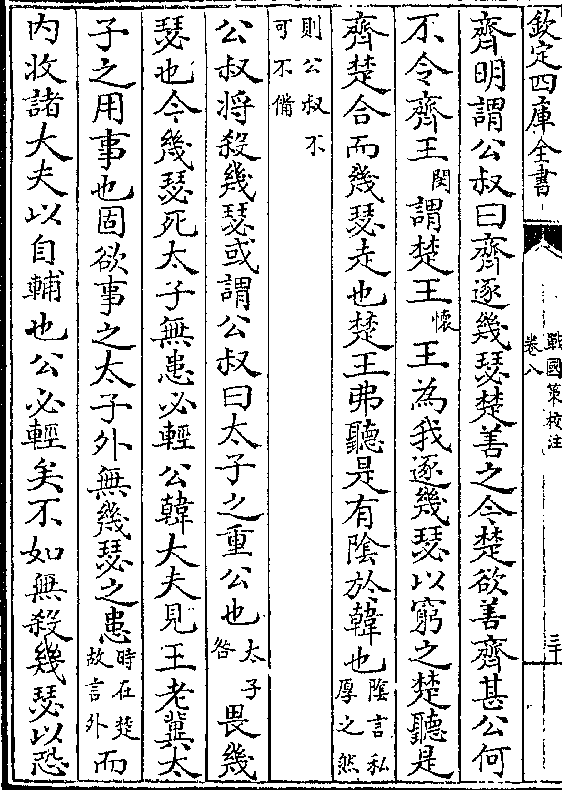 欽定四庫全書
戰國策校注
卷八
三十
齊明謂公叔曰齊逐幾瑟楚善之今楚欲善齊甚公何
不令齊王閔謂楚王懷王為我逐幾瑟以窮之楚聽是
齊楚合而幾瑟走也楚王弗聽是有陰於韓也陰言私厚之然
則公叔不可不備
公叔将殺幾瑟或謂公叔曰太子之重公也太子咎畏幾
瑟也今幾瑟死太子無患必輕公韓大夫見王老冀太
子之用事也固欲事之太子外無幾瑟之患時在楚故言外而
内收諸大夫以自輔也公必輕矣不如無殺幾瑟以恐